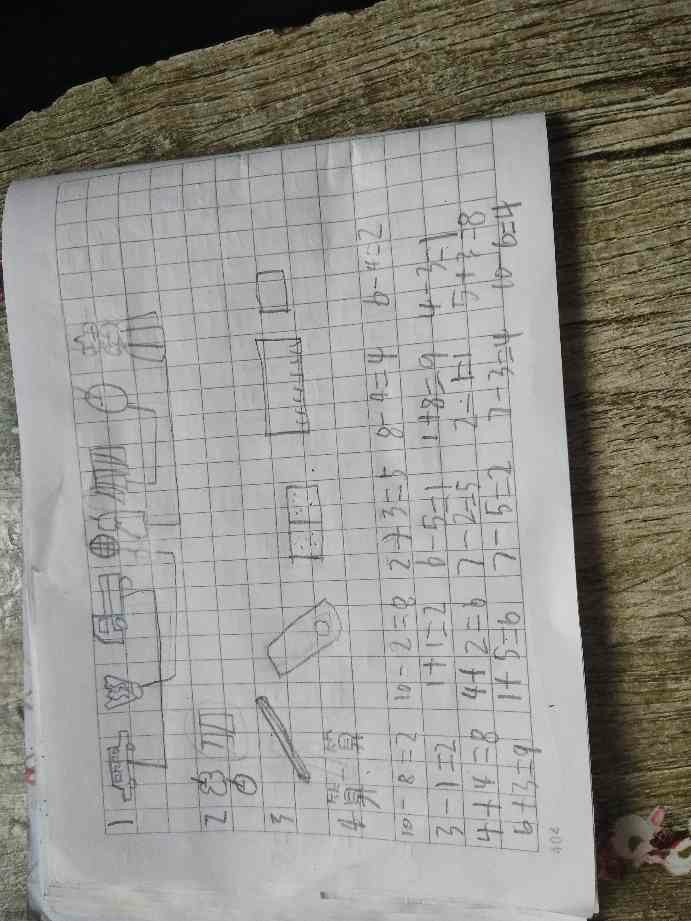 1
2
3
4 算一算
10-8=2 10-2=8 2+3=5 8-4=4 6-4=2
3-1=2 1+1=2 6-5=1 1+8=9 4-3=1
4+4=8 4+2=6 7-2=5 2-1=1 5+3=8
6+3=9 1+5=6 7-5=2 7-3=4 10-6=4
404